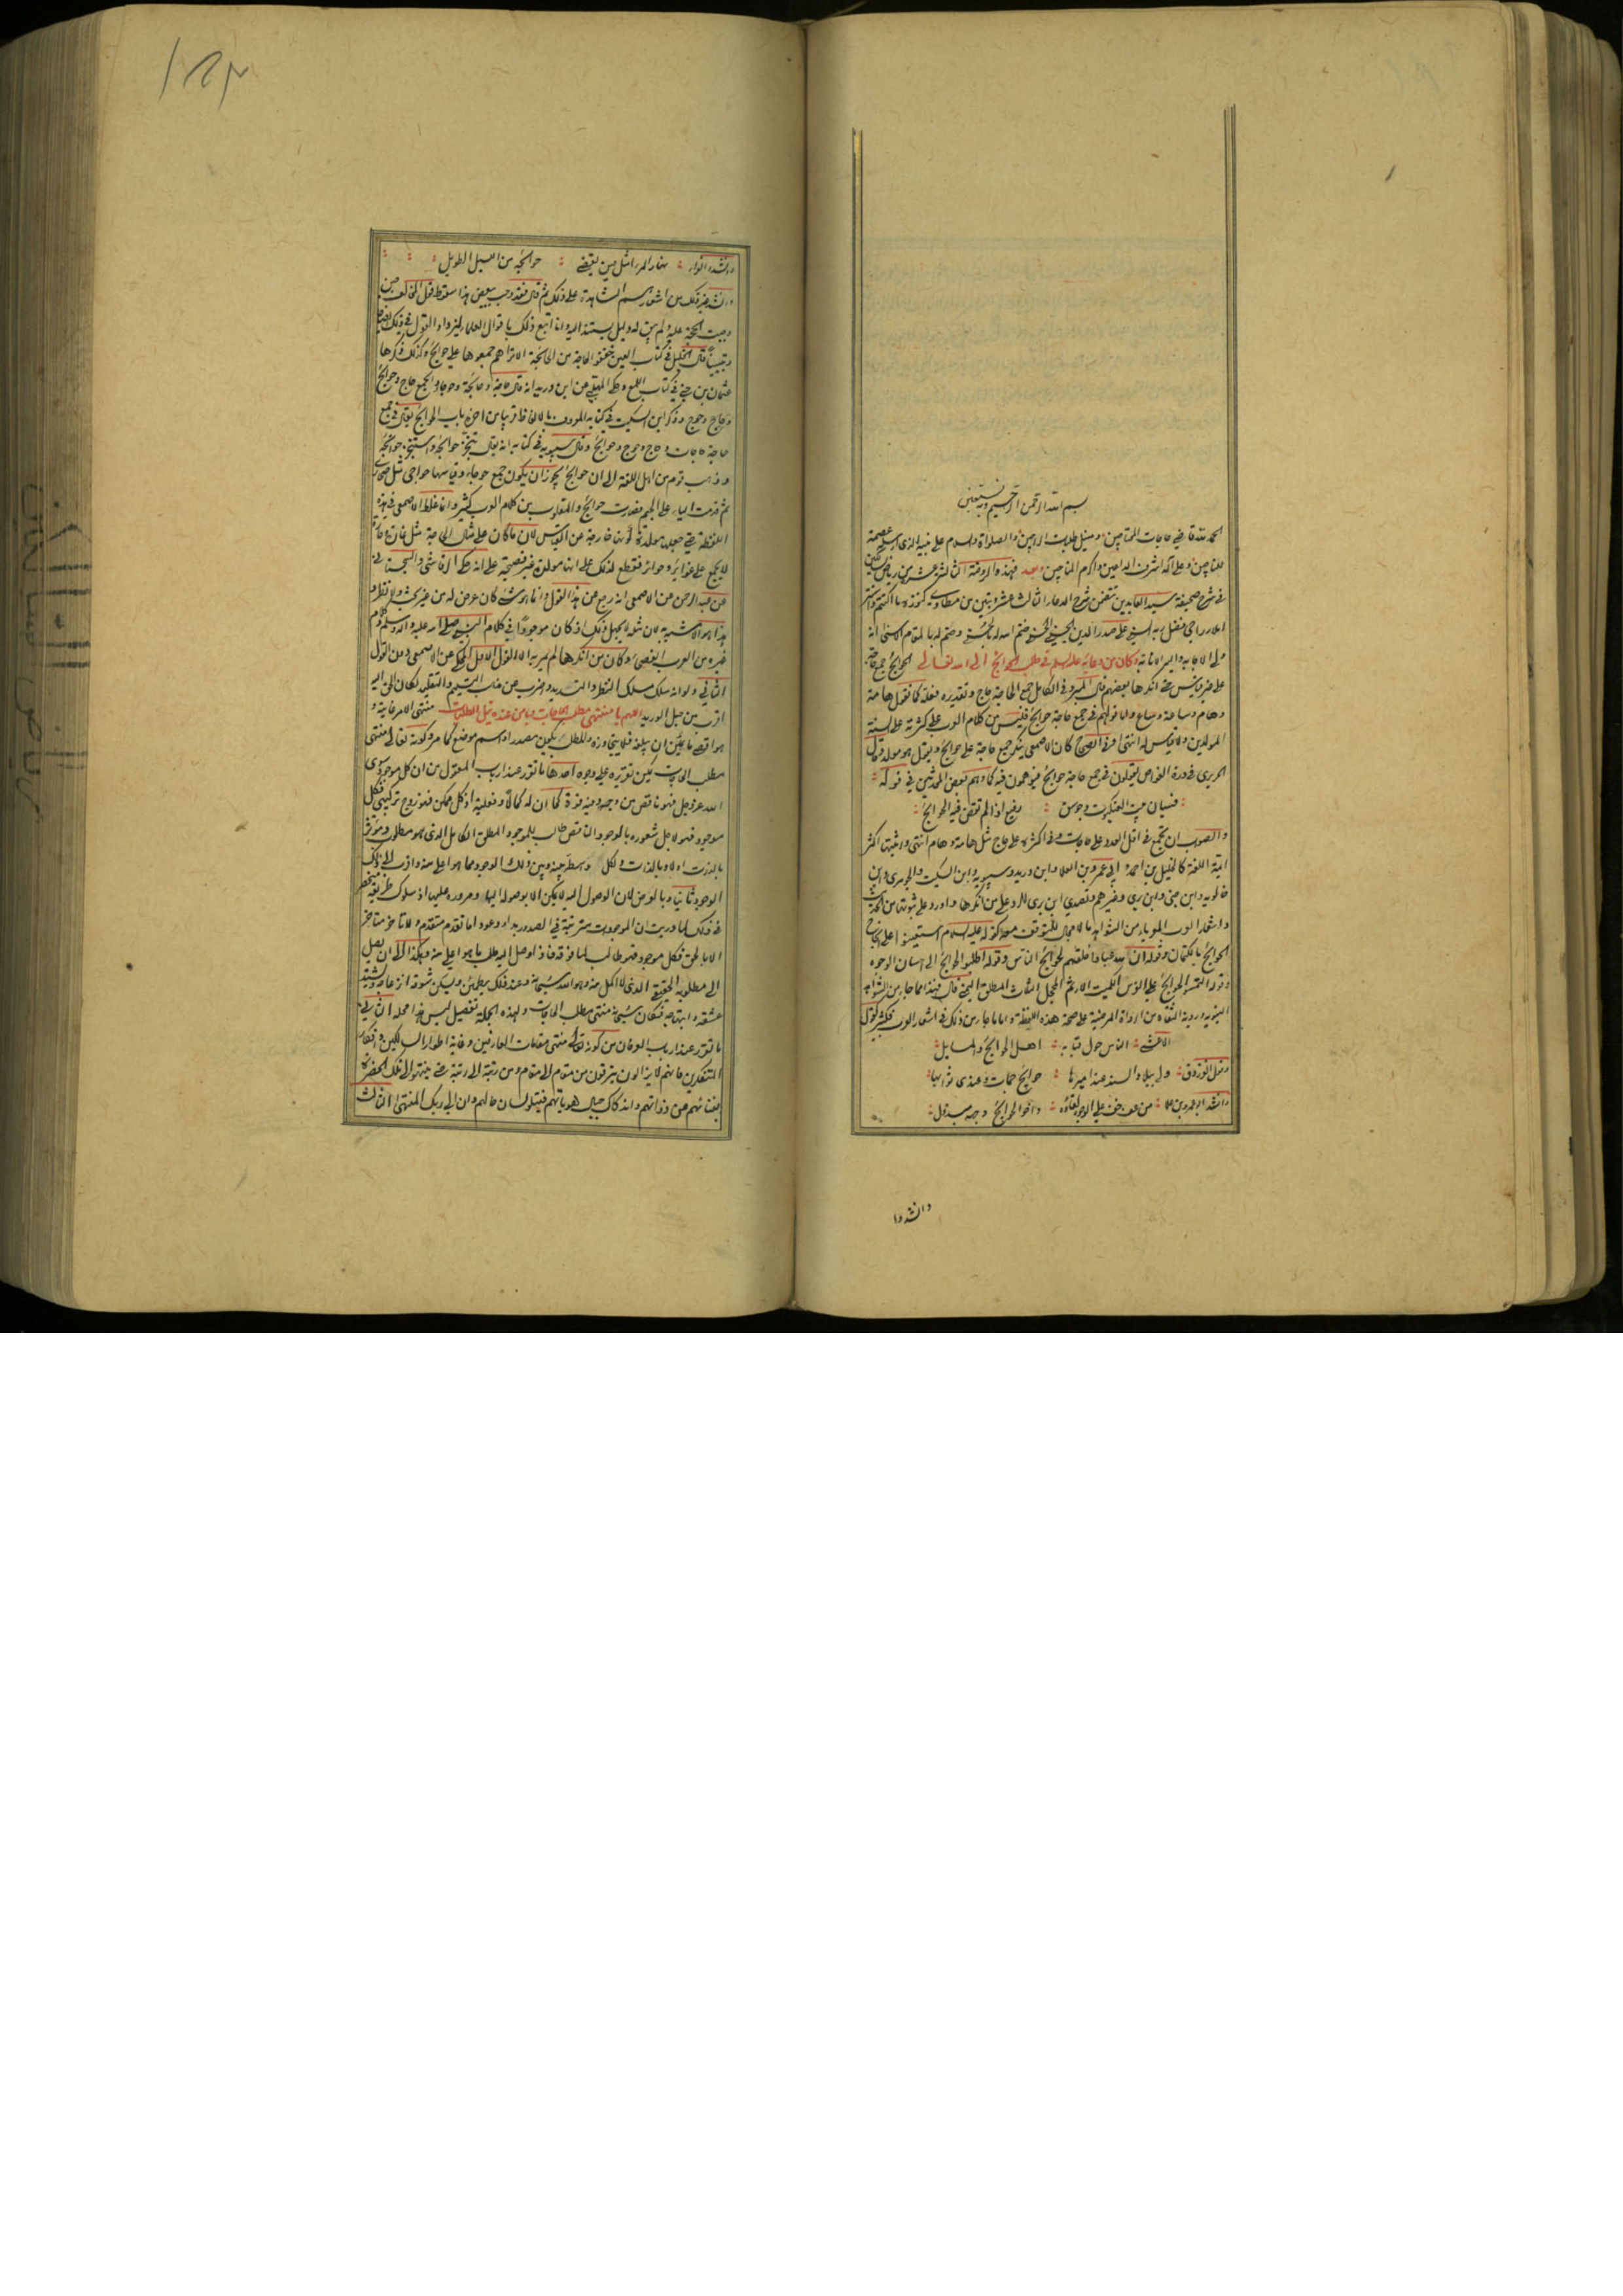 بسم الله الرحمن الرحيم وبه نستعين
الحمد لله قاضي حاجات المحتاجين ومنيل طلبات الراجين والصلواة والسلام على نبيه الذي
للناجين وعلى آله اشرف الداعين واكرم المناجين وبعد فهذه الروضة الثالثة عشر من رياض السالكين
في شرح صحيفة سيد العابدين تتضمن شرح الدعاء الثالث عشر
املاء راجي فضل ربه السني علي صدر الدين الحسيني الحسني ختم الله له بالحسنى
ولي الاجابه واليه الانابة وكان من دعائه عليه السلم في طلب الحوائج الى الله تعالى الحوائج جمع حاجة
على غير قياس حتى انكرها بعضهم قال المبرد في الكامل جمع الحاجة حاج وتقديره فعلة كما تقول هامة
وهام وساعة وساع واما قولهم في جمع حاجة حوائج فليس من كلام العرب على كثرته على السنة
المولدين ولا قياس له انتهى وفي الصحاح كان الاصمعي ينكر جمع حاجة على حوائج ويقول هو مولد وقال
الحريري في درة الغواص يقولون في جمع حاجة حوائج فيوهمون فيه كما وهم بعض المحدثين في قوله
فسيان بيت العنكبوت وجوسق رفيع اذا لم تقض فيه الحوائج
والصواب ان تجمع في اقل العدد على حاجات وفي اكثره على حاج مثل هامة وهام انتهى واثبتها اكثر
ايمة اللغة كالخليل بن احمد وابي عمرو بن العلا وابن دريد وسيبويه وابن السكيت والجوهري وابن
خالويه وابن جني وابن بري وغيرهم وتصدى ابن بري للرد على من انكرها واورد على ثبوتها من الحديث
واشعار العرب الموثوق من الشواهد ما لا مجال للتوقف معه كقوله عليه السلام استعينوا على انجاح
الحوائج بالكتمان وقوله ان لله عبادا خلقهم لحوائج الناس وقوله اطلبوا الحوائج الى حسان الوجوه
النبوية وروية الثقاه من الرواة المرضية على صحة هذه اللفظة واما ما جاء من ذلك في اشعار العرب فكثير كقول
الاعشى الناس حول قبابه اهل الحوائج والمسايل
وقول الفرزدق ولي ببلاد السند عند اميرها حوائج جمات وعندي ثوابها
وانشد ابو عمرو بن العلا من عف خف على الوجوه لقاؤه واخو الحوائج وجهه مبذول
وانشدوا
وانشد الفراء نهار المرء امثل حين يقضي حوائجه من الليل الطويل
وجبت الحجة عليه ولم يبق له دليل يستند اليه وانا اتبع ذلك باقوال العلماء ليزداد القول في ذلك
قال الخليل في كتاب العين خففوا الحاجة من الحائجة الا تراهم جمعوها على حوائج وكذلك ذكرها
عثمان بن جني في كتاب اللمع وحكى المهلبي عن ابن دريد انه قال حاجة وحائجة وحوجا والجمع حاج وحوائج
وحاج وحوج وذكر ابن السكيت في كتابه المعروف بالالفاظ قريبا من اخره باب الحوائج يقال في جمع
حاجة حاجات وحاج وحوج وحوائج وقال سيبويه في كتابه انه يقال تنجز حوائجه واستنجز حوائجه
وذهب قوم من اهل اللغة الى ان حوائج يجوز ان يكون جمع حوجاء وقياسها حواجي مثل صحارى
ثم قدمت الياء على الجيم فصارت حوائج والمقلوب من كلام العرب كثير وانما غلط الاصمعي في هذه
اللفظة حتى جعلها مولدة كونها خارجة عن القياس لان ما كان على مثال الحاجة مثل غارة وحارة
لا يجمع على غوائر وحوائر فقطع لذلك على انها مولدة غير فصيحة على انه حكى الرقاشي والسجستاني
عن عبد الرحمن عن الاصمعي انه رجع عن هذا القول وانما هو شيء كان عرض له من غير بحث ولا نظر و
هذا هو الاشبه به لان مثله لا يجهل ذلك اذ كان موجودا في كلام النبي صلى الله عليه واله وسلم وكلام
غيره من العرب الفصحاء وكان من انكرها لم يمر به الا القول الاول المحكي عن الاصمعي دون القول
الثاني ولو انه سلك مسلك النظر والتسديد واضرب عن مذهب التسليم والتقليد لكان الحق اليه
اقرب من حبل الوريد اللهم يا منتهى مطلب الحاجات ويا من عنده نيل الطلبات منتهى الامر غايته و
هو اقصى ما يمكن ان يبلغه فلا يتجاوزه والمطلب يكون مصدرا واسم موضع كما مر وكونه تعالى منتهى
مطلب الحاجات يمكن تقريره على وجوه احدها ما تقرر عند ارباب المعقول من ان كل موجود سوى
الله عز وجل فهو ناقص من وجه وفيه قوة كما ان له كمالا وفعلية اذ كل ممكن فهو زوج تركيبي فكل
موجود فهو لاجل شعوره بالوجود الناقص طالب للموجود المطلق الكامل الذي هو مطلوب ومؤثر
بالذات اولا وبالذات ولكل واسطة بينه وبين ذلك الوجود مما هو اعلى منه واقرب الى ذلك
الوجود ثانيا وبالعرض لان الوصول اليه لا يمكن الا بوصوله اليها ومروره عليها اذ سلوك طريقه منحصر
في ذلك لما دريت ان الموجودات مترتبة في الصدور بدوا وعودا ما تقدم متقدم ولا تاخر متاخر
الا بالحق فكل موجود فهو طالب لما فوقه فاذا وصل اليه طلب ما هو اعلى منه وهكذا الى ان يصل
الى مطلوبه الحقيقي الذي لا اكمل منه وهو الله سبحانه وعند ذلك يطمئن ويسكن شوقه
عشقه وابتهاجه فكان سبحانه منتهى مطلب الحاجات ولهذه الجملة تفصيل ليس هذا محله الثاني
ما تقرر عند ارباب العرفان من كونه تعالى منتهى مقامات العارفين وغاية اطوار السالكين وافكار
المتفكرين فانهم لا يزالون يترقون من مقام الى مقام ومن رتبة الى رتبة حتى ينتهوا الى تلك الحضرة
بفنائهم عن ذواتهم واندكاك جبال هوياتهم فيتلو لسان حالهم وان الى ربك المنتهى الثالث